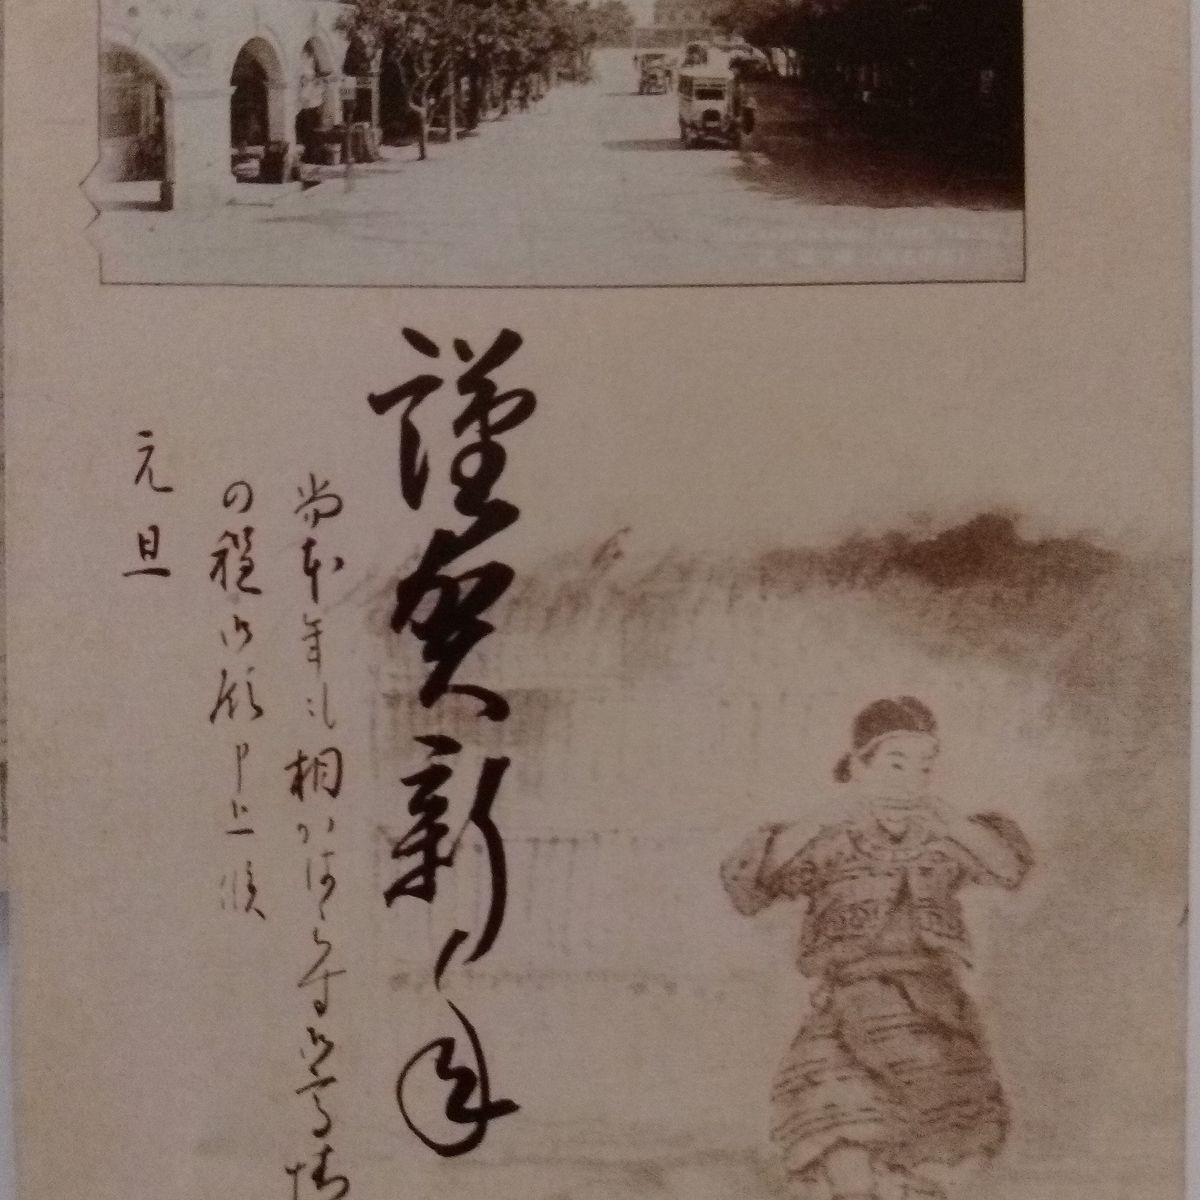 謹賀新年
尚本年も相かはらず御高情
の程御願申上候
元旦